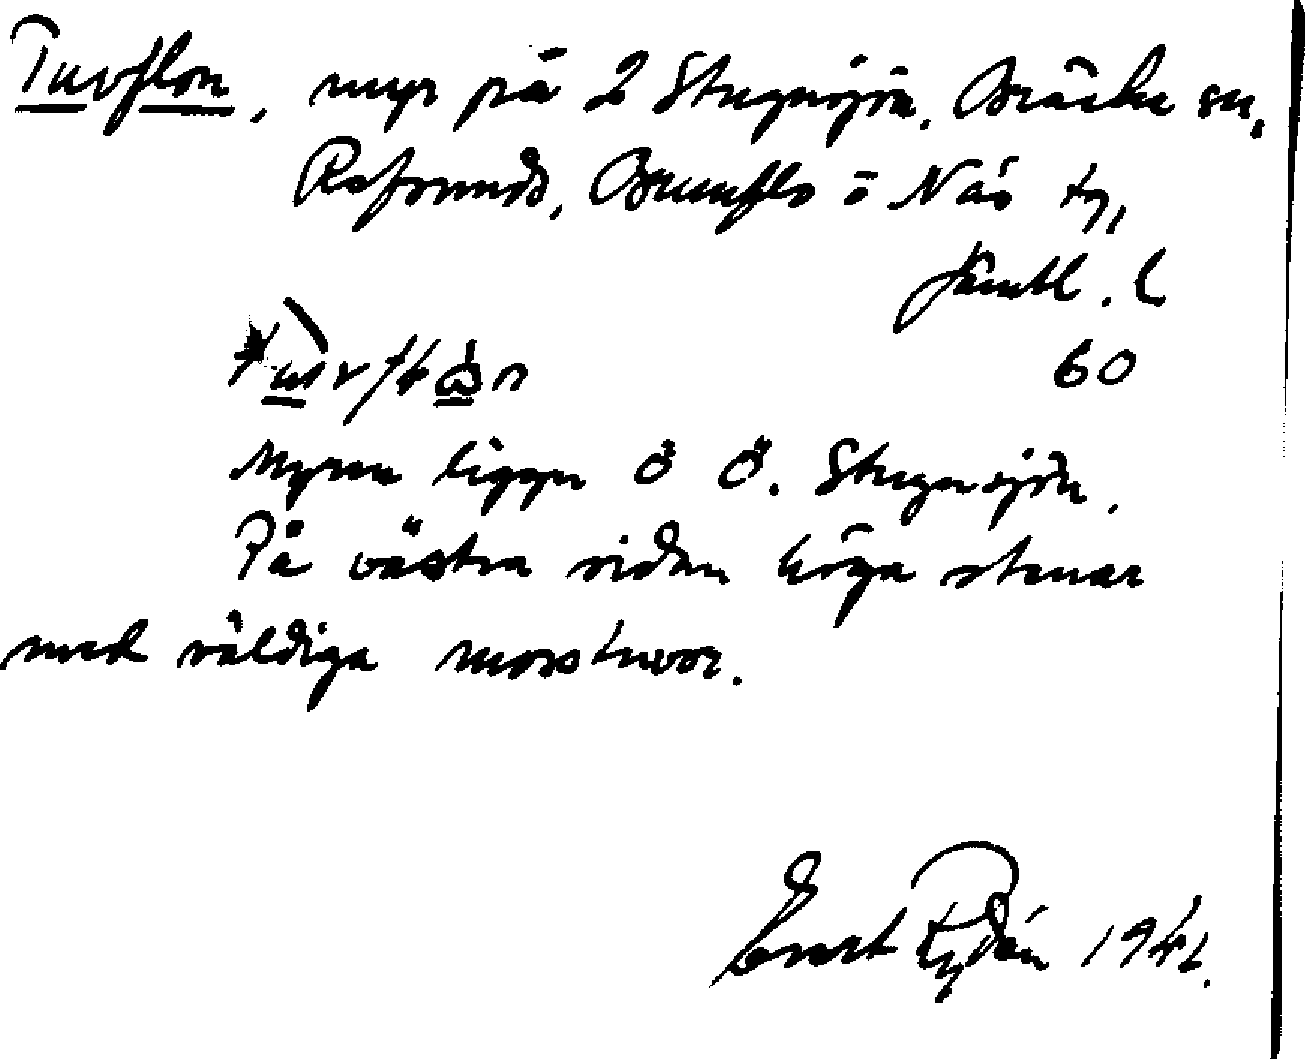 Tuvflon, myr på 2 Stugusjön, Bräcke sn,
Refsunds, Brunflo o Näs tg,
Jämtl. l
60
Myren ligger Ö Ö. Stugusjön.
På västra sidan höga stenar
med väldiga mosstuvor.
Ernst Rydén 1941.